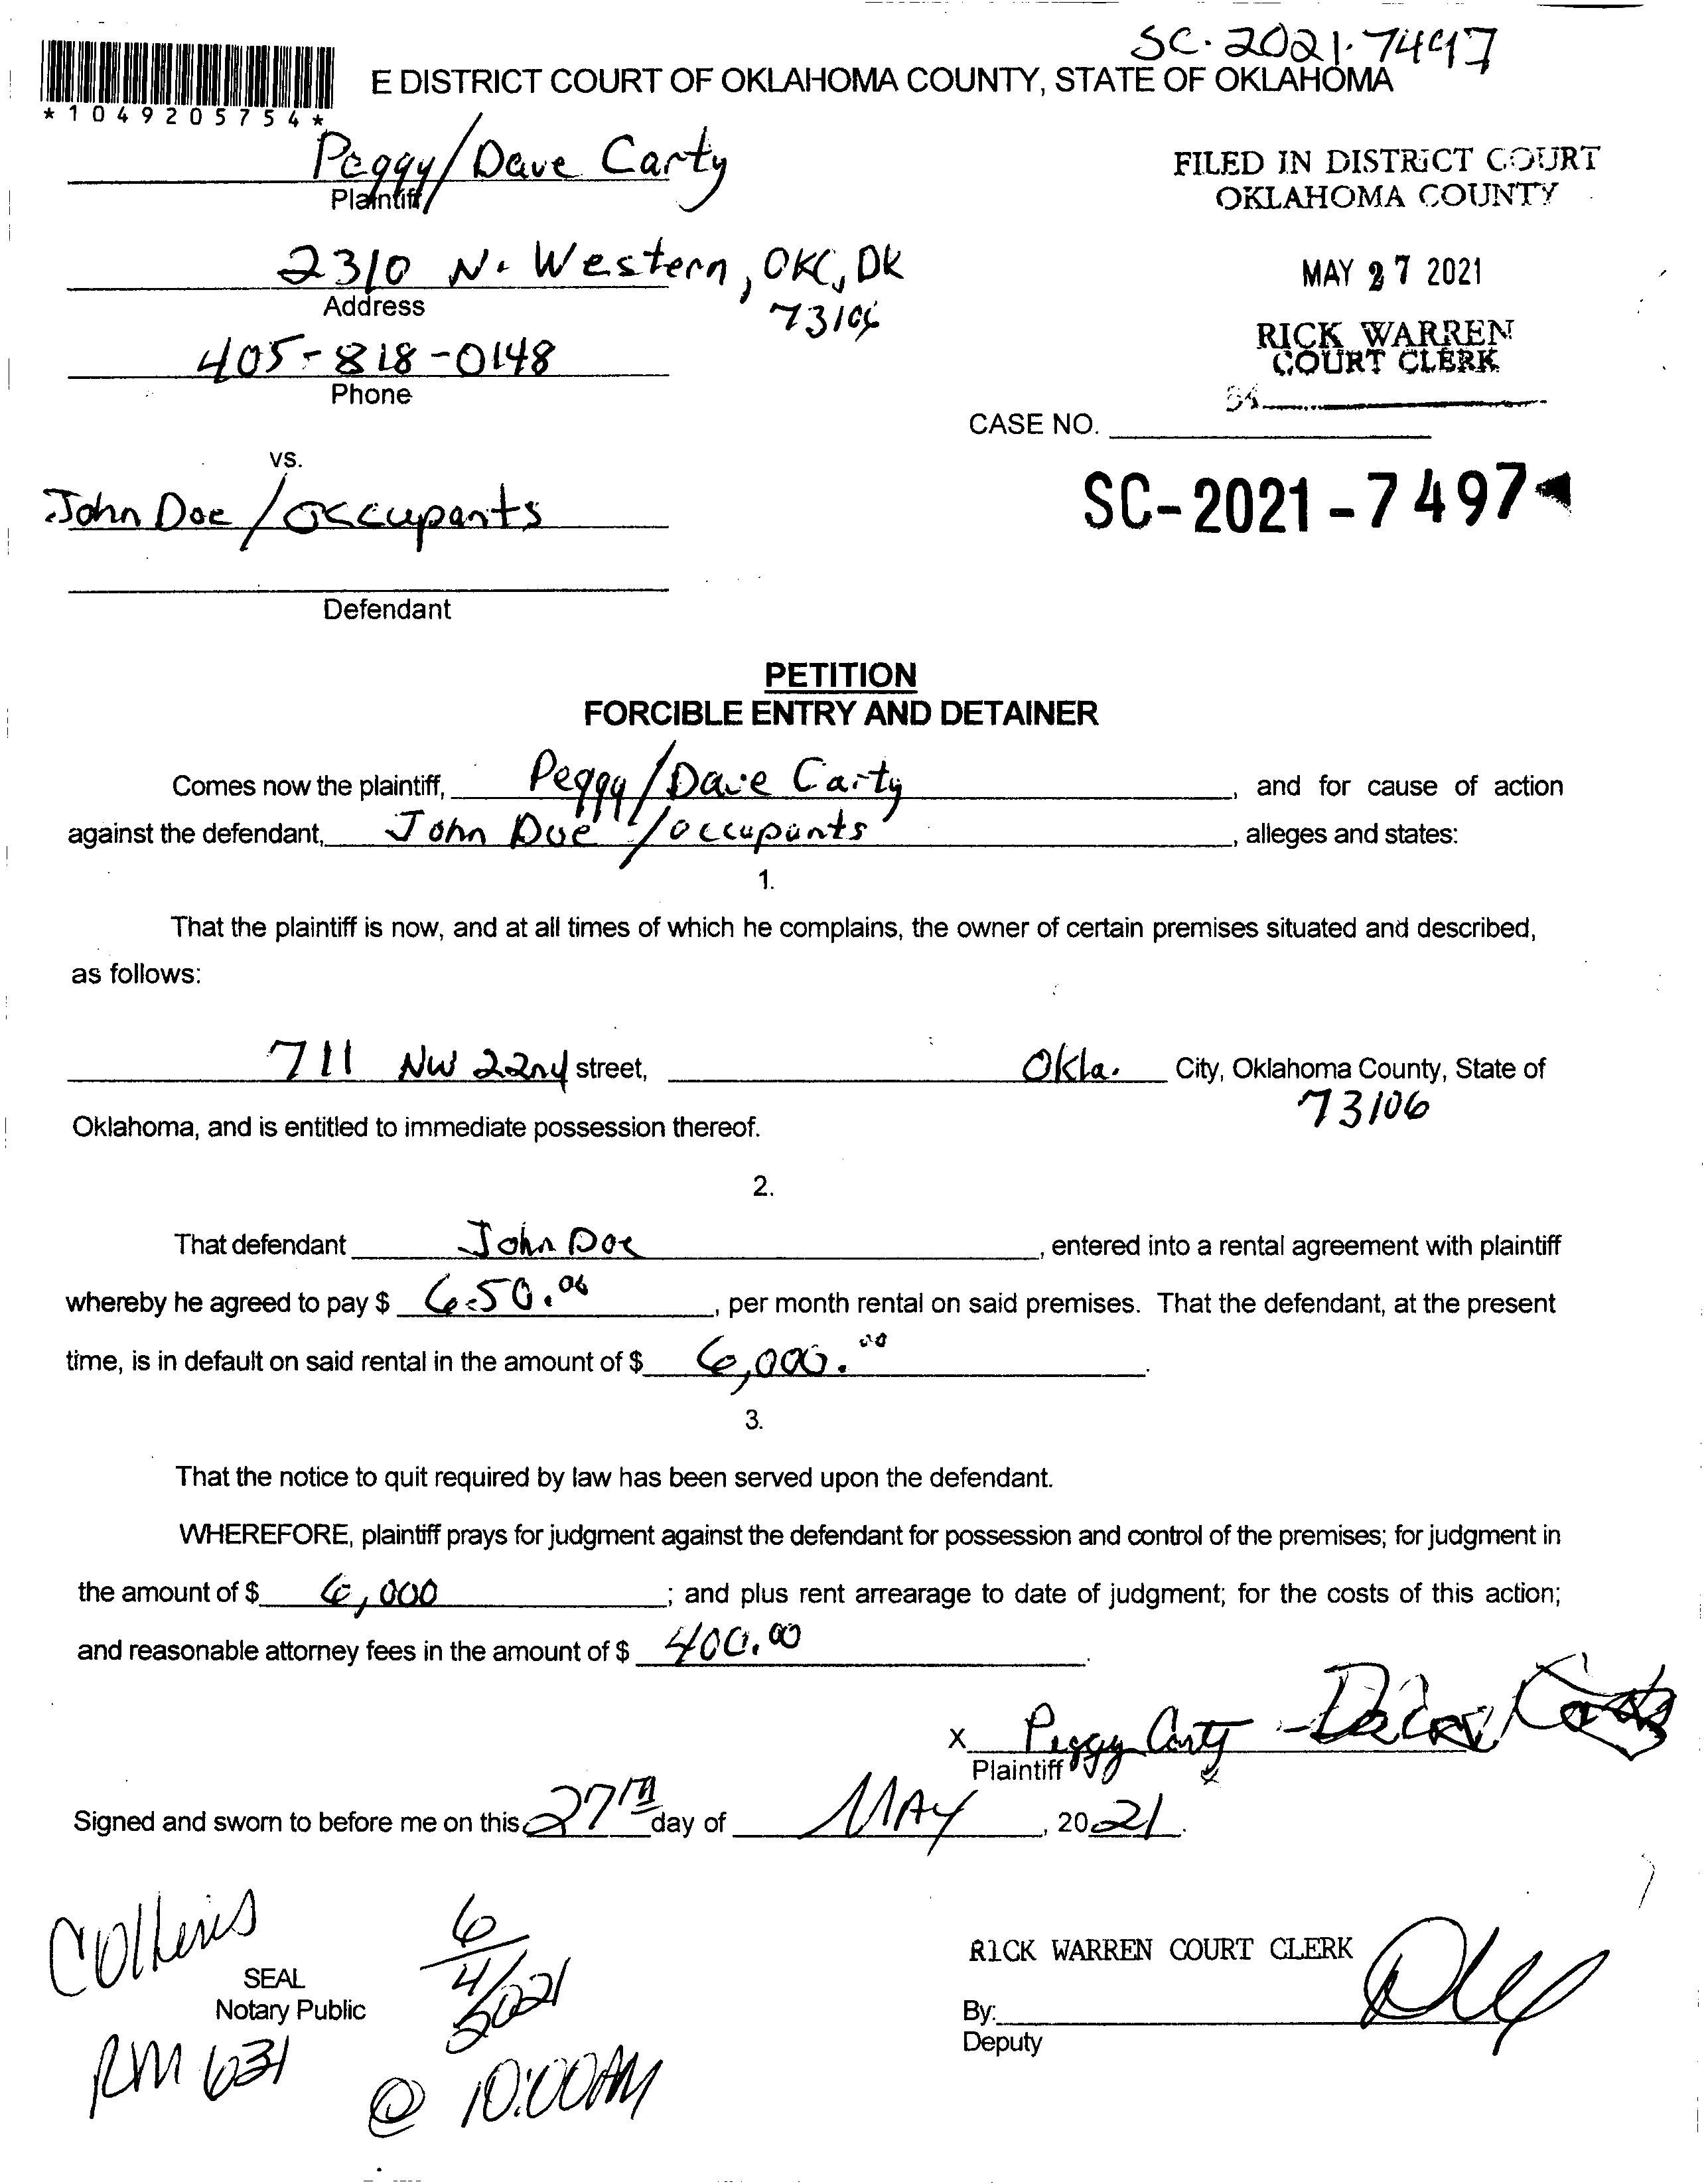 SC-2021-7497
E DISTRICT COURT OF OKLAHOMA COUNTY, STATE OF OKLAHOMA
*1049205754*
Peggy/Dave Carty
Plaintiff
FILED IN DISTRICT COURT
OKLAHOMA COUNTY
2310 N. Western, OKC, OK
73106
Address
MAY 27 2021
405-818-0148
Phone
RICK WARREN
COURT CLERK
CASE NO.
vs.
John Doe / occupants
SC-2021-7497
Defendant
PETITION
FORCIBLE ENTRY AND DETAINER
Comes now the plaintiff, Peggy/Dave Carty, and for cause of action
against the defendant, John Doe / occupants, alleges and states:
1.
That the plaintiff is now, and at all times of which he complains, the owner of certain premises situated and described,
as follows:
711 NW 22nd street, Okla. City, Oklahoma County, State of
73106
Oklahoma, and is entitled to immediate possession thereof.
2.
That defendant John Doe, entered into a rental agreement with plaintiff
whereby he agreed to pay $ 650.00, per month rental on said premises. That the defendant, at the present
time, is in default on said rental in the amount of $ 6,000.00.
3.
That the notice to quit required by law has been served upon the defendant.
WHEREFORE, plaintiff prays for judgment against the defendant for possession and control of the premises; for judgment in
the amount of $ 6,000; and plus rent arrearage to date of judgment; for the costs of this action;
and reasonable attorney fees in the amount of $ 400.00.
x Peggy Carty
Plaintiff
Signed and sworn to before me on this 27TH day of MAY, 2021.
Collins
6/4/2021
SEAL
Notary Public
RM 631
@ 10:00AM
RICK WARREN COURT CLERK
By:
Deputy